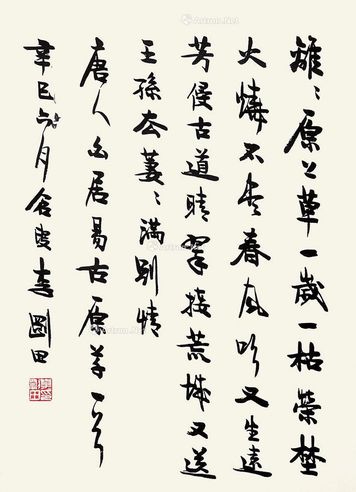 離〻原上草一歲一枯榮埜
火燒不盡春風吹又生遠
芳侵古道晴翠接荒城又送
王孫去萋〻滿別情
唐人白居易古原草一首
辛巳月李剛田
Artron.Net